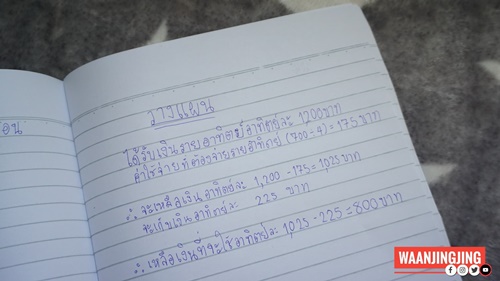 อน
วางแผน
ได้รับเงินรายอาทิตย์อาทิตย์ละ 1200 บาท
ค่าใช้จ่ายที่ต้องจ่ายรายอาทิตย์ (700÷4) = 175 บาท
∴ จะเหลือเงินอาทิตย์ละ 1,200 - 175 = 1,025 บาท
จะเก็บเงินอาทิตย์ละ 225 บาท
∴ เหลือเงินที่จะใช้อาทิตย์ละ 1,025 - 225 = 800 บาท
WAANJINGJING